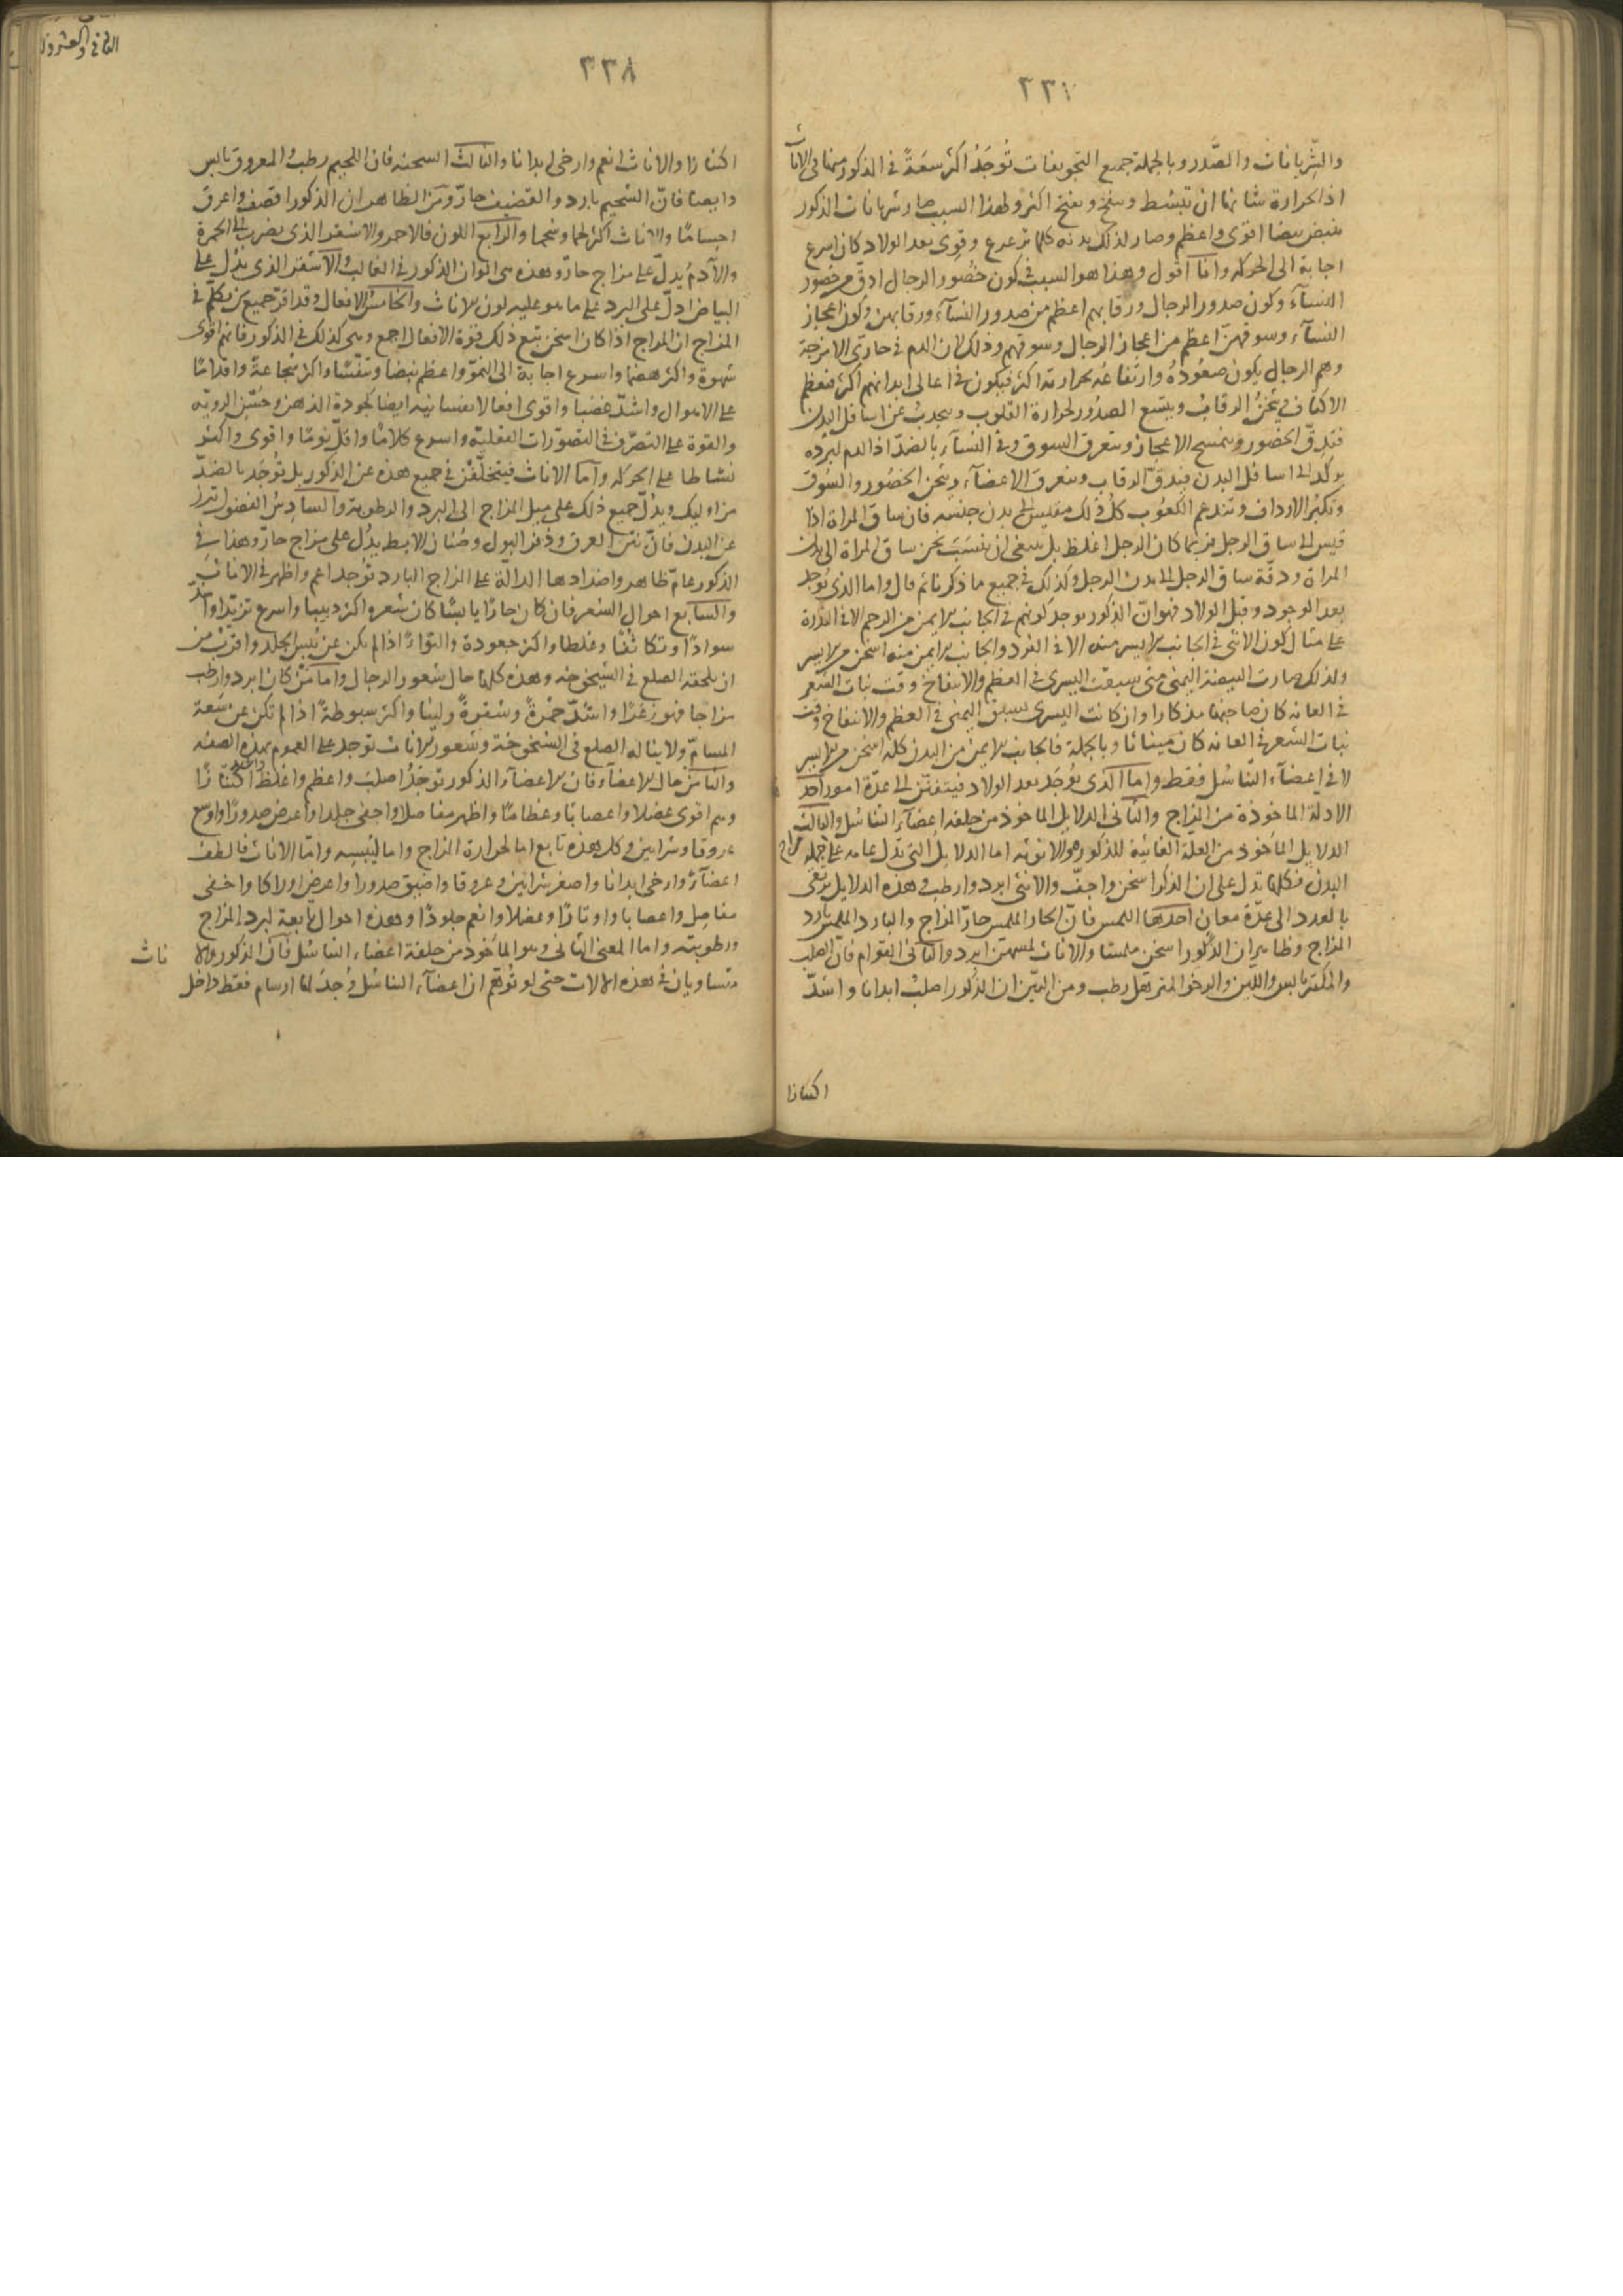 ٣٣٧
والشريانات والصدر وبالجملة جميع التجويفات توجد اكثر سعة في الذكور منها في الاناث
اذ الحرارة شانها ان تبسط وتفتح اكثر ولهذا السبب صار شريانات الذكور
ينبض نبضا اقوى واعظم وصار لذلك بدنه كلما ترعرع وقوى بعد الولاد كان اسرع
اجابة الى الحركة وانا اقول وهذا هو السبب في كون خصور الرجال ادق من خصور
النساء وكون صدور الرجال ورقابهم اعظم من صدور النساء ورقابهن وكون اعجاز
النساء وسوقهن اعظم من اعجاز الرجال وسوقهم وذلك لان الدم في حاري الامزجة
وهم الرجال يكون صعوده وارتفاعه بحرارته اكثر فيكون في اعالى ابدانهم اكثر فتعظم
الاكتاف وتثخن الرقاب ويتسع الصدور لحرارة القلوب وينجذب عن اسافل البدن
فتدق الخصور وتتمسح الاعجاز وتتعرق السوق وفي النساء بالضد اذ الدم لبرده
يركد الى اسافل البدن فيدق الرقاب وتتعرق الاعضاء وتثخن الخصور والسوق
وتكبر الارداف وتندعم الكعوب كل ذلك مقيس الى بدن جنسه فان ساق المراة اذا
قيس الى ساق الرجل فربما كان الرجل اغلظ بل ينبغي ان ينسب ثخن ساق المراة الى بدن
المراة ودقة ساق الرجل الى بدن الرجل وكذلك في جميع ما ذكرنا ثم قال واما الذي يوجد
بعد الوجود وقبل الولاد فهو ان الذكور يوجد كونهم في الجانب الايمن من الرحم الا في الندرة
على مثال كون الانثى في الجانب الايسر منه الا في الفرد والجانب الايمن منه اسخن من الايسر
ولذلك صارت البيضة اليمنى متى سبقت اليسرى في العظم والانتفاخ وقت نبات الشعر
في العانة كان صاحبها مذكارا وان كانت اليسرى تسبق اليمنى في العظم والانتفاخ وقت
نبات الشعر في العانة كان ميناثا وبالجملة فالجانب الايمن من البدن كله اسخن من الايسر
لا في اعضاء التناسل فقط واما الذي يوجد بعد الولاد فيتفنن الى عدة امور احد
الادلة الماخوذة من المزاج والثاني الدلايل الماخوذ من خلقة اعضاء التناسل والثالث
الدلايل الماخوذ من العلة الغائية للذكورة والانوثة اما الدلايل التي تدل عامة على جملة مزاج
البدن فكلها تدل على ان الذكر اسخن واجف والانثى ابرد وارطب وهذه الدلايل ترتقى
بالعدد الى عدة معان احدها اللمس فان الحار الملمس حار المزاج والبارد الملمس بارد
المزاج وظاهر ان الذكور اسخن ملمسا والاناث لمسهن ابرد والثاني القوام فان الصلب
والمكتنز يابس واللين والرخو المترهل رطب ومن البين ان الذكور اصلب ابدانا واشد
اكتنازا
الثاني والعشرون
٣٣٨
اكتنازا والاناث انعم وارخى ابدانا والثالث السحنة فان اللحيم رطب والمعروق يابس
وايضا فان الشحيم بارد والقضيف حار ومن الظاهر ان الذكور اقضف واعرق
اجساما والاناث اكثر لحما وشحما والرابع اللون فالاحمر والاشقر الذي يضرب الى الحمرة
والآدم يدل على مزاج حار وهذه هى الوان الذكور في الغالب والاشقر الذي يدل على
البياض ادل على البرد على ما هو عليه لون الاناث والخامس الافعال وقد اقر جميع من تكلم في
المزاج ان المزاج اذا كان اسخن تبع ذلك قوة الافعال اجمع وهى كذلك في الذكور فانهم اقوى
شهوة واكثر هضما واسرع اجابة الى النمو واعظم نبضا وتنفسا واكثر شجاعة واقداما
على الاهوال واشد غضبا واقوى افعالا نفسانيه ايضا لجودة الذهن وحسن الرويه
والقوة على التصرف في التصورات العقلية واسرع كلاما واقل نوما واقوى واكثر
نشاطا على الحركة واما الاناث فيتخلفن في جميع هذه عن الذكور بل توجد بالضد
من اوليك ويدل جميع ذلك على ميل المزاج الى البرد والرطوبة والسادس الفضول تبرز
عن البدن فان نتن العرق وذفر البول وصنان الابط يدل على مزاج حار وهذا في
الذكور عام ظاهر واضدادها الدالة على المزاج البارد توجد اعم واظهر في الاناث
والسابع احوال الشعر فان كان حارا يابسا كان شعره اكثر دبيبا واسرع تزيدا واشد
سوادا وتكاثفا وغلظا واكثر جعودة والتواء اذا لم يكن عن يبس الجلد واقرب من
ان يلحقه الصلع في الشيخوخة وهذه كلها حال شعور الرجال واما من كان ابرد وارطب
مزاجا فهو زعرا واشد حمرة وشقرة ولينا واكثر سبوطة اذا لم تكن عن سعة
المسام ولا يناله الصلع في الشيخوخة وشعور الاناث توجد على العموم بهذه الصفه
والثامن حال الاعضاء فان الاعضاء الذكور توجد اصلب واعظم واغلظ واشد اكتنازا
وهم اقوى عضلا واعصابا وعظاما واظهر مفاصلا واجفى جلدا واعرض صدورا واوسع
عروقا وشرايين وكل هذه تابع اما لحرارة المزاج واما ليبسه واما الاناث فالطف
اعضاء وارخى ابدانا واصغر شرايين وعروقا واضيق صدورا واعرض اوراكا واخفى
مفاصل واعصابا واوتارا وعضلا وانعم جلودا وهذه احوال تابعة لبرد المزاج
ورطوبته واما المعنى الثاني وهو الماخوذ من خلقة اعضاء التناسل فان الذكور والا ناث
متساويان في هذه الالات حتى لو توهم ان اعضاء التناسل وجد لها ارسام فقط داخل